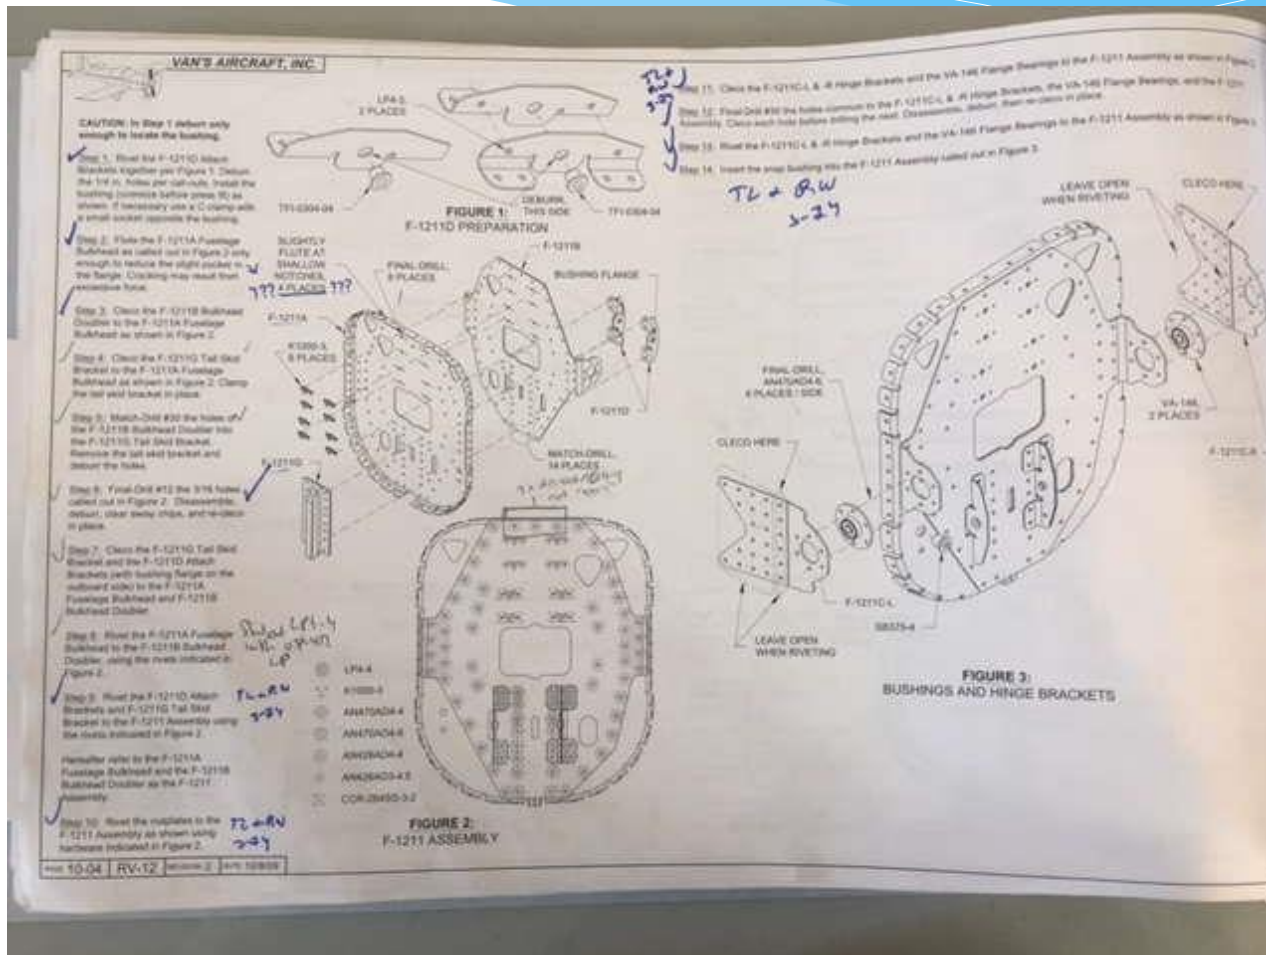 VAN'S AIRCRAFT, INC.
CAUTION: In Step 1 deburr only
enough to locate the bushing.
Step 1: Rivet the F-1211D Attach
Brackets together per Figure 1. Deburr
the 1/4 in. holes per call-outs. Install the
bushing (common before press fit) as
shown. If necessary use a C clamp with
a small socket opposite the bushing.
Step 2: Flute the F-1211A Fuselage
Bulkhead as called out in Figure 2 only
enough to reduce the slight pucker in
the flange. Cracking may result from
excessive force.
Step 3: Cleco the F-1211B Bulkhead
Doubler to the F-1211A Fuselage
Bulkhead as shown in Figure 2.
Step 4: Cleco the F-1211G Tail Skid
Bracket to the F-1211A Fuselage
Bulkhead as shown in Figure 2. Clamp
the tail skid bracket in place.
Step 5: Match-Drill #30 the holes of
the F-1211B Bulkhead Doubler into
the F-1211G Tail Skid Bracket.
Remove the tail skid bracket and
deburr the holes.
Step 6: Final-Drill #12 the 3/16 holes
called out in Figure 2. Disassemble,
deburr, clear away chips, and re-cleco
in place.
Step 7: Cleco the F-1211G Tail Skid
Bracket and the F-1211D Attach
Brackets (with bushing flange on the
outboard side) to the F-1211A
Fuselage Bulkhead and F-1211B
Bulkhead Doubler.
Step 8: Rivet the F-1211A Fuselage
Bulkhead to the F-1211B Bulkhead
Doubler, using the rivets indicated in
Figure 2.
Step 9: Rivet the F-1211D Attach
Brackets and F-1211G Tail Skid
Bracket to the F-1211 Assembly using
the rivets indicated in Figure 2.
TL & RW
3-24
Hereafter refer to the F-1211A
Fuselage Bulkhead and the F-1211B
Bulkhead Doubler as the F-1211
Assembly.
Step 10: Rivet the nutplates to the
F-1211 Assembly as shown using
hardware indicated in Figure 2.
TL & RW
3-24
PAGE 10-04 RV-12 REVISION: 2 DATE: 10/8/09
LP4-3,
2 PLACES
TFI-0304-04
DEBURR,
THIS SIDE
TFI-0304-04
FIGURE 1:
F-1211D PREPARATION
SLIGHTLY
FLUTE AT
SHALLOW
NOTCHES,
4 PLACES
??? ???
FINAL-DRILL,
8 PLACES
F-1211B
BUSHING FLANGE
F-1211A
K1000-3,
8 PLACES
F-1211D
F-1211G
MATCH-DRILL,
14 PLACES
LP4-4
K1000-3
AN470AD4-4
AN470AD4-6
AN426AD4-4
AN426AD3-4.5
FIGURE 2:
F-1211 ASSEMBLY
TL &
RW
3-24
Step 11: Cleco the F-1211C-L & -R Hinge Brackets and the VA-146 Flange Bearings to the F-1211 Assembly as shown in Figure 3.
Step 12: Final-Drill #30 the holes common to the F-1211C-L & -R Hinge Brackets, the VA-146 Flange Bearings, and the F-1211
Assembly. Cleco each hole before drilling the next. Disassemble, deburr, then re-cleco in place.
Step 13: Rivet the F-1211C-L & -R Hinge Brackets and the VA-146 Flange Bearings to the F-1211 Assembly as shown in Figure 3.
Step 14: Insert the snap bushing into the F-1211 Assembly called out in Figure 3.
TL & RW
3-24
LEAVE OPEN
WHEN RIVETING
CLECO HERE
FINAL-DRILL,
AN470AD4-6,
4 PLACES / SIDE
VA-146,
2 PLACES
F-1211C-R
CLECO HERE
F-1211C-L
SB375-4
LEAVE OPEN
WHEN RIVETING
FIGURE 3:
BUSHINGS AND HINGE BRACKETS